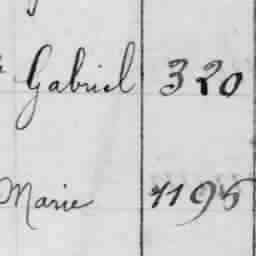 Gabriel 320
Marie 1195